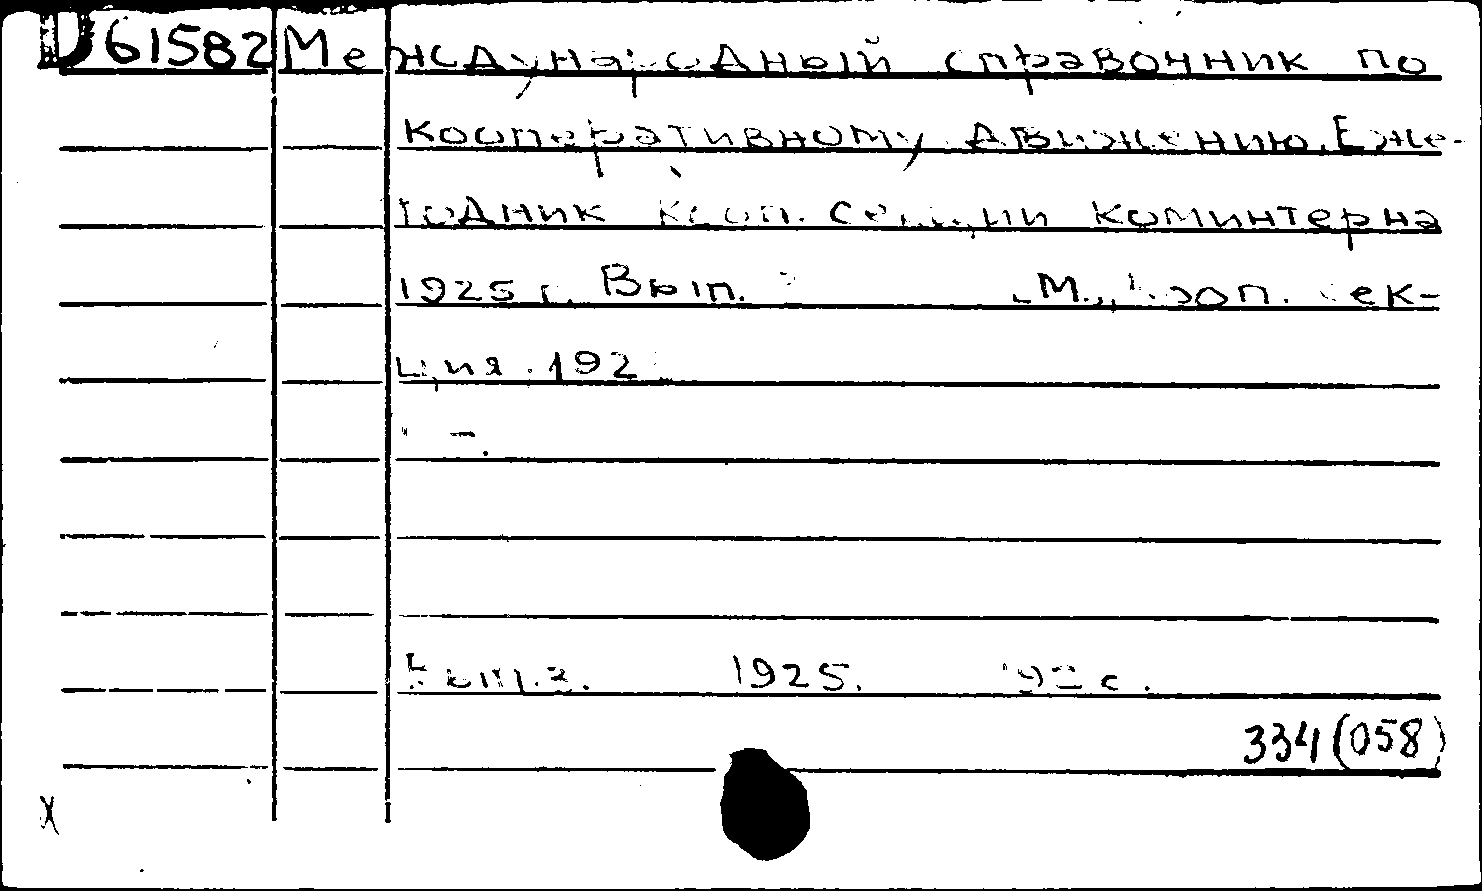 D61582 Международный справочник по
кооперативному движению. Еже-
годник Кооп. секции Коминтерна
1925 г. Вып. М., Кооп. сек-
ция. 192
Вып.3. 1925. с.
334(058)
X